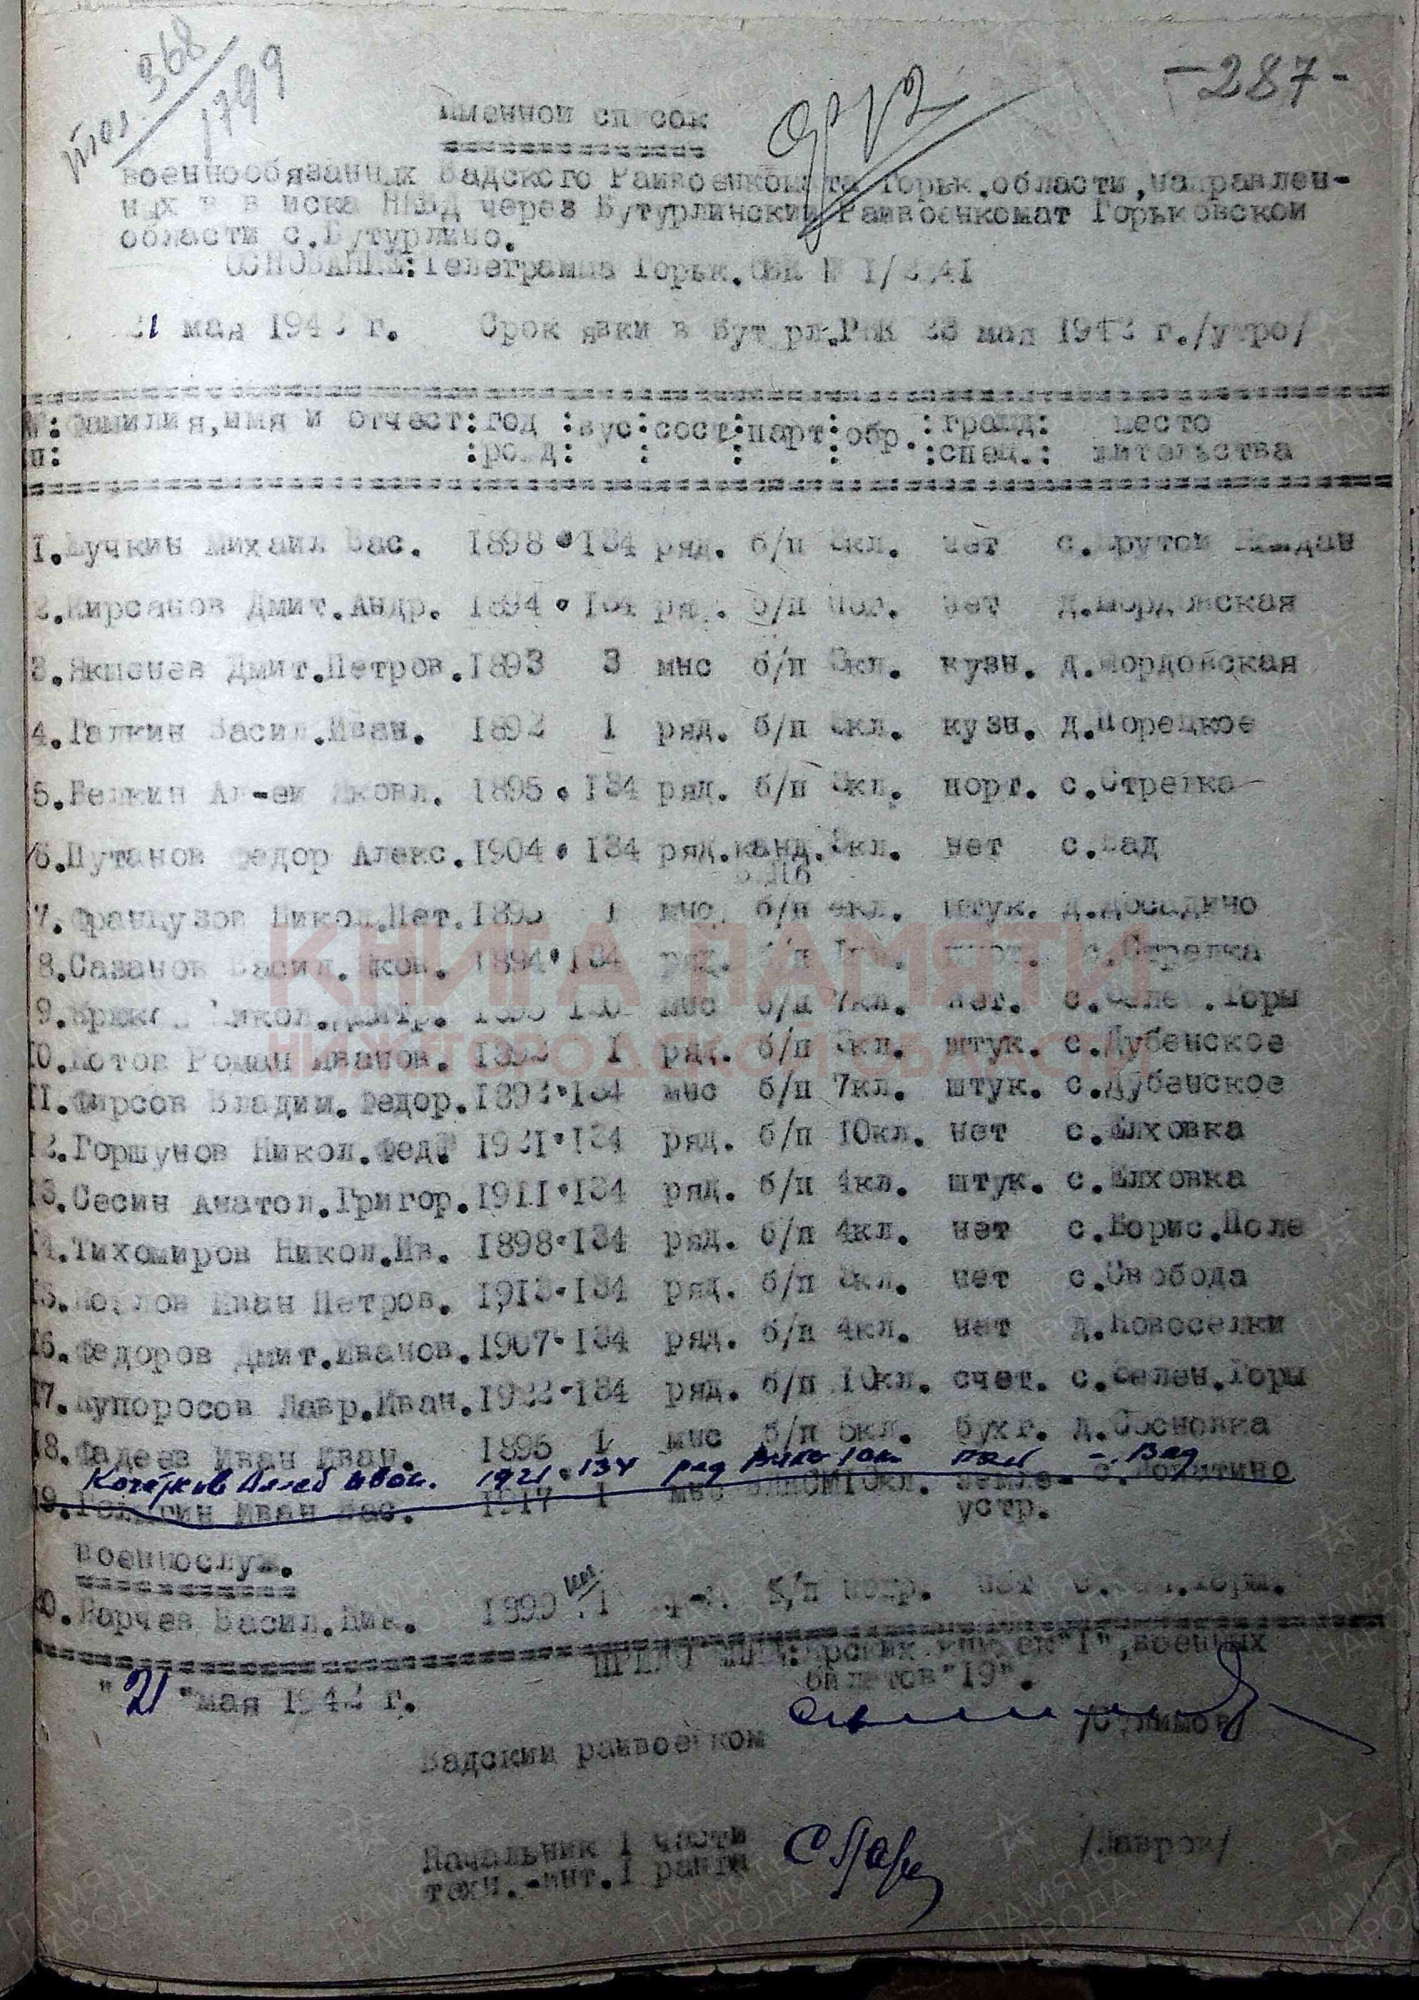 368
1799
-287-
Именной список
военнообязанных Вадского Райвоенкомата Горьк.области,направлен-
ных в в йска НКВД через Бутурлинский Райвоенкомат Горьковской
области с.Бутурлино.
ОСНОВАНИЕ:Телеграмма Горьк.ОВК № I/
21 мая 1942 г. Срок явки в Бут рл.РВК 23 мая 1942 г./утро/
№:Фамилия,имя и отчест:год :вус:сост:парт:обр.:гражд: место
п: :рожд: : : : :спец.: жительства
1. Михаил Вас. 1898 134 ряд. б/п 3кл. нет с.Крутой Майдан
2.Кирсанов Дмит.Андр. 1894 134 ряд. б/п нет д.Мордовская
3.Якшенев Дмит.Петров.1893 3 мнс б/п 3кл. кузн. д.Мордовская
4.Галкин Васил.Иван. 1892 1 ряд. б/п 3кл. кузн. д.Порецкое
5.Белкин Ал-ей Яковл. 1895 134 ряд. б/п 3кл. порт. с.Стрелка
6.Путанов Федор Алекс.1904 134 ряд.канд.3кл. нет с.Вад
7.Французов Никол.Пет.1895 1 мнс. б/п 4кл. штук. д.Досадино
8.Сазанов Васил.Яков. 1894 134 ряд. б/п с.Стрелка
9. Никол.Дмитр. мнс б/п 7кл. нет. с.Зелен.Горы
10.Котов Роман Иванов. 1892 1 ряд. б/п 3кл. штук. с.Дубенское
11.Фирсов Владим.Федор.1892 134 мнс б/п 7кл. штук. с.Дубенское
12.Горшунов Никол.Фед. 1921 134 ряд. б/п 10кл. нет с.Елховка
13.Сесин Анатол.Григор.1911 134 ряд. б/п 4кл. штук. с.Елховка
14.Тихомиров Никол.Ив. 1898 134 ряд. б/п 4кл. нет с.Борис.Поле
15.Козлов Иван Петров. 1913 134 ряд. б/п 3кл. нет с.Свобода
16.Федоров Дмит.Иванов.1907 134 ряд. б/п 4кл. нет д.Новоселки
17.Купоросов Лавр.Иван.1922 134 ряд. б/п 10кл. счет. с.Зелен.Горы
18.Фадеев Иван Иван. 1895 1 мнс б/п 5кл. бухг. д.Сосновка
1921 134 ряд Вад
19. Иван Вас. 1917 1 мнс ВЛКСМ10кл. земле- с.Лопатино
устр.
военнослуж.
20.Варчев Васил.Ник. 1899 1 б/п нет с.Зел.Горы.
ПРИЛОЖЕНИЕ: "1",военных
билетов"19".
"21"мая 1942 г.
Вадский райвоенком /Сулимов/
Начальник 1 части
техн.-инт.1 ранга /Лавров/
КНИГА ПАМЯТИ
НИЖЕГОРОДСКОЙ ОБЛАСТИ
ПАМЯТЬ НАРОДА